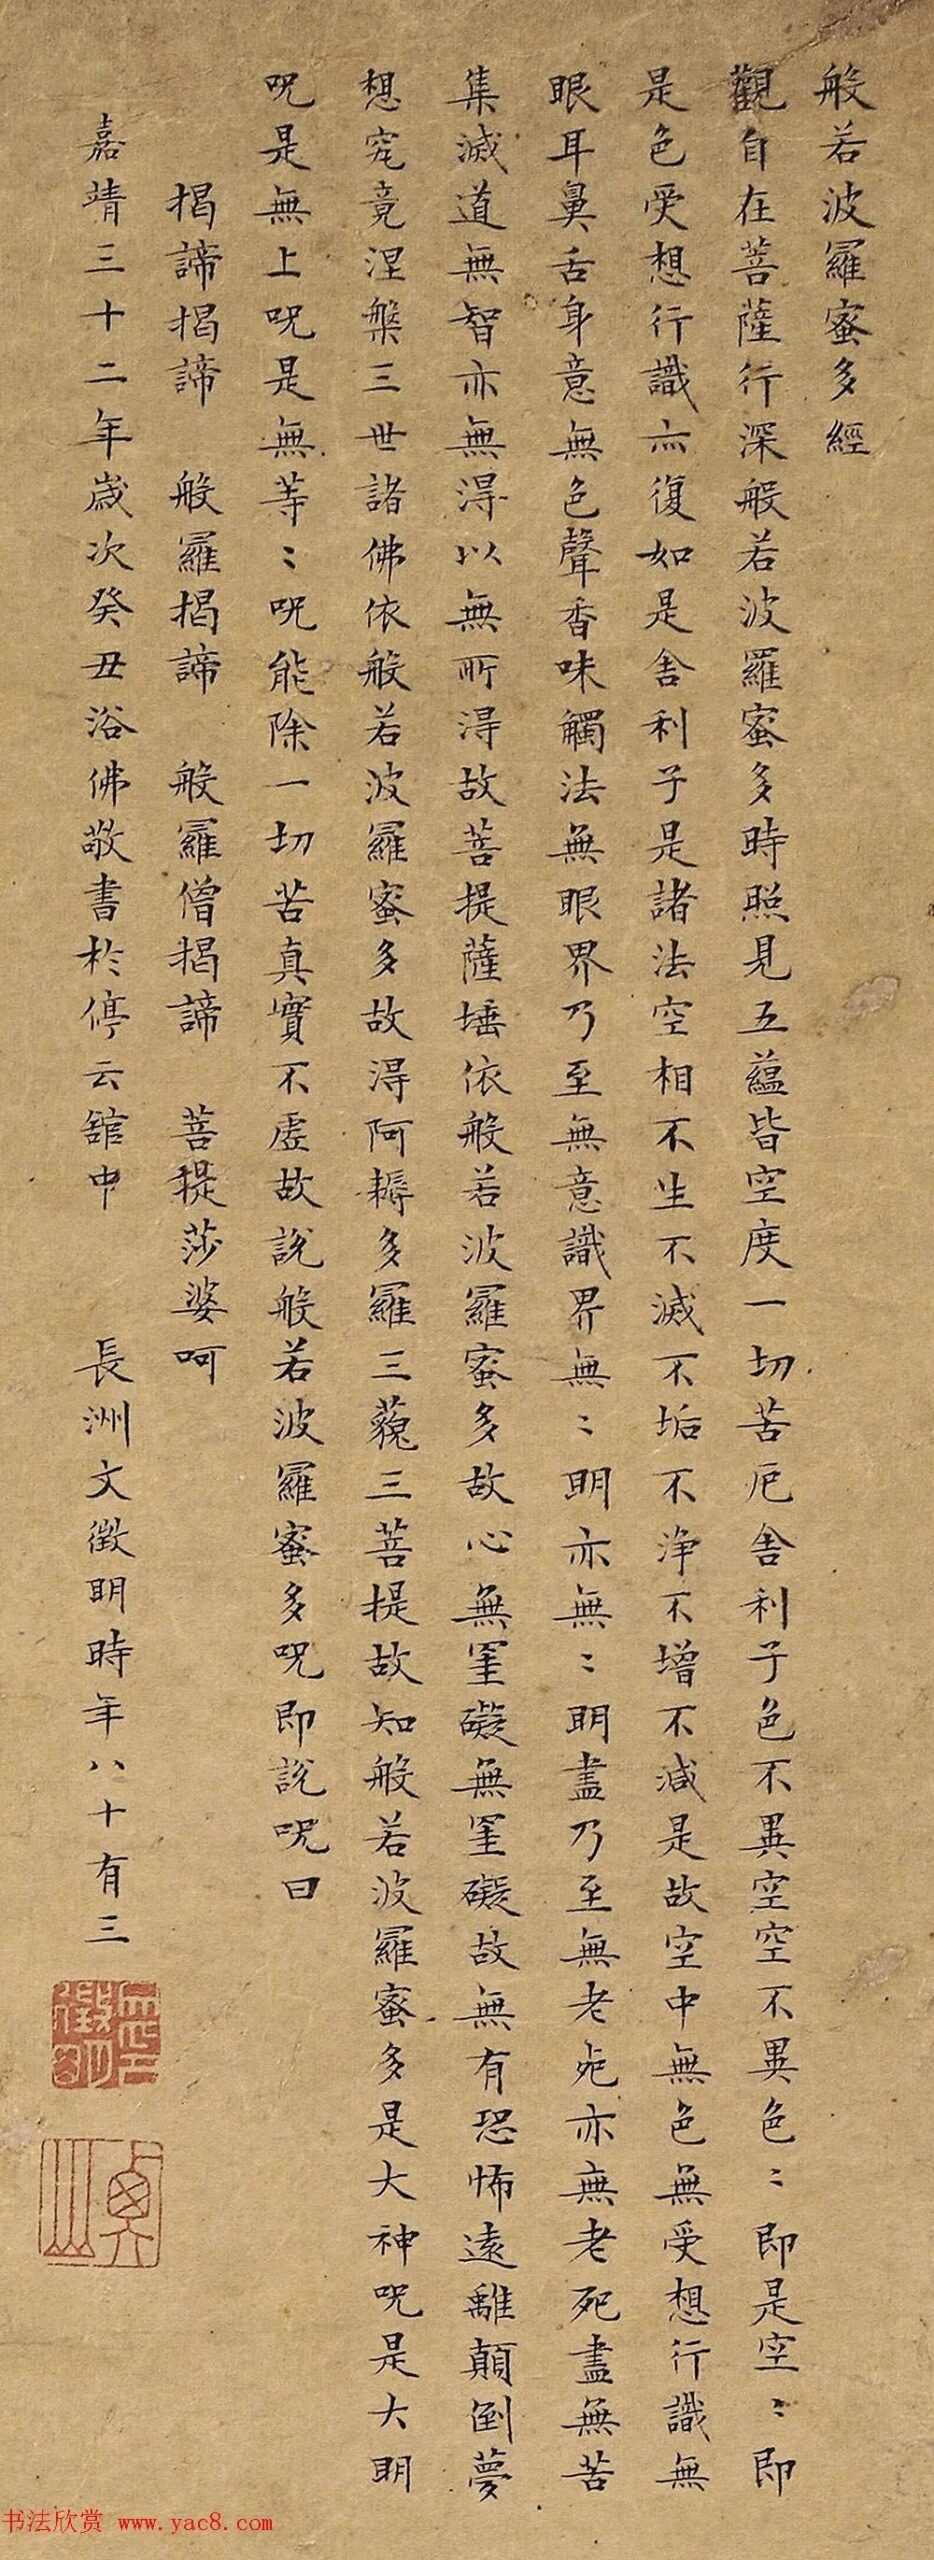 般若波羅蜜多經
觀自在菩薩行深般若波羅蜜多時照見五蘊皆空度一切苦厄舍利子色不異空空不異色〻即是空〻即
是色受想行識亦復如是舍利子是諸法空相不生不滅不垢不淨不增不減是故空中無色無受想行識無
眼耳鼻舌身意無色聲香味觸法無眼界乃至無意識界無〻明亦無〻明盡乃至無老死亦無老死盡無苦
集滅道無智亦無得以無所得故菩提薩埵依般若波羅蜜多故心無罣礙無罣礙故無有恐怖遠離顛倒夢
想究竟涅槃三世諸佛依般若波羅蜜多故得阿耨多羅三藐三菩提故知般若波羅蜜多是大神呪是大明
呪是無上呪是無等〻呪能除一切苦真實不虛故說般若波羅蜜多呪即說呪曰
揭諦揭諦 般羅揭諦 般羅僧揭諦 菩提莎婆呵
嘉靖三十二年歲次癸丑浴佛敬書於停云舘中 長洲文徵明時年八十有三
书法欣赏 www.yac8.com